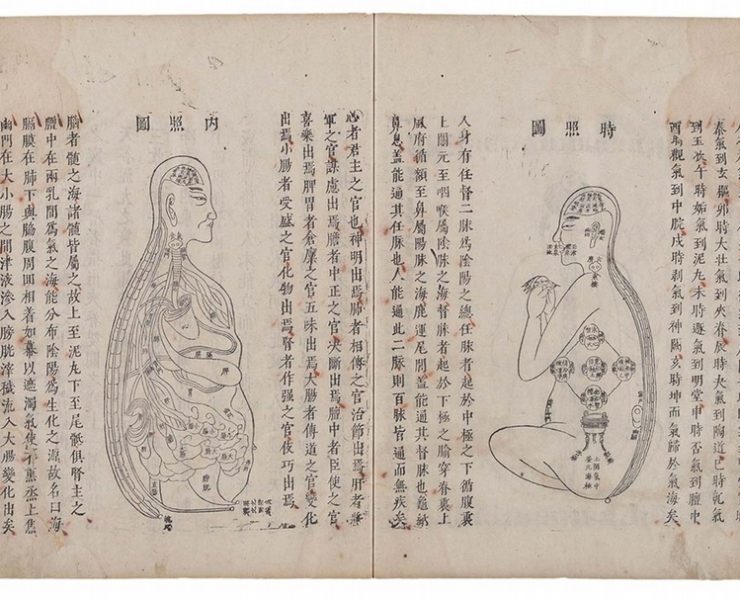 泰氣到玄樞卯時大壯氣到夾脊辰時夬氣到陶道巳時乾氣
到玉次午時姤氣到泥丸未時遯氣到明堂申時否氣到膻中
酉時觀氣到中脘戌時剝氣到神闕亥時坤而氣歸於氣海矣
時照圖
人身有任督二脉為陰陽之總任脉者起於中極之下循腹裏
上關元至咽喉屬陰脉之海督脉者起於下極之腧穿脊裏上
風府循額至鼻屬陽脉之海鹿運尾閭蓋能通其督脉也龜納
鼻息蓋能通其任脉也人能通此二脉則百脉皆通而無疾矣
心者君主之官也神明出焉肺者相傅之官治節出焉肝者將
軍之官謀慮出焉膽者中正之官決斷出焉膻中者臣使之官
喜樂出焉脾胃者倉廩之官五味出焉大腸者傳道之官變化
出焉小腸者受盛之官化物出焉腎者作强之官伎巧出焉
內照圖
膀胱
腦者髓之海諸髓皆屬之故上至泥丸下至尾骶俱腎主之
膻中在兩乳間為氣之海能分布陰陽為生化之源故名曰海
膈膜在肺下與脇腹周回相着如幕以遮濁氣使不熏蒸上焦
幽門在大小腸之間津液滲入膀胱滓穢流入大腸變化出矣